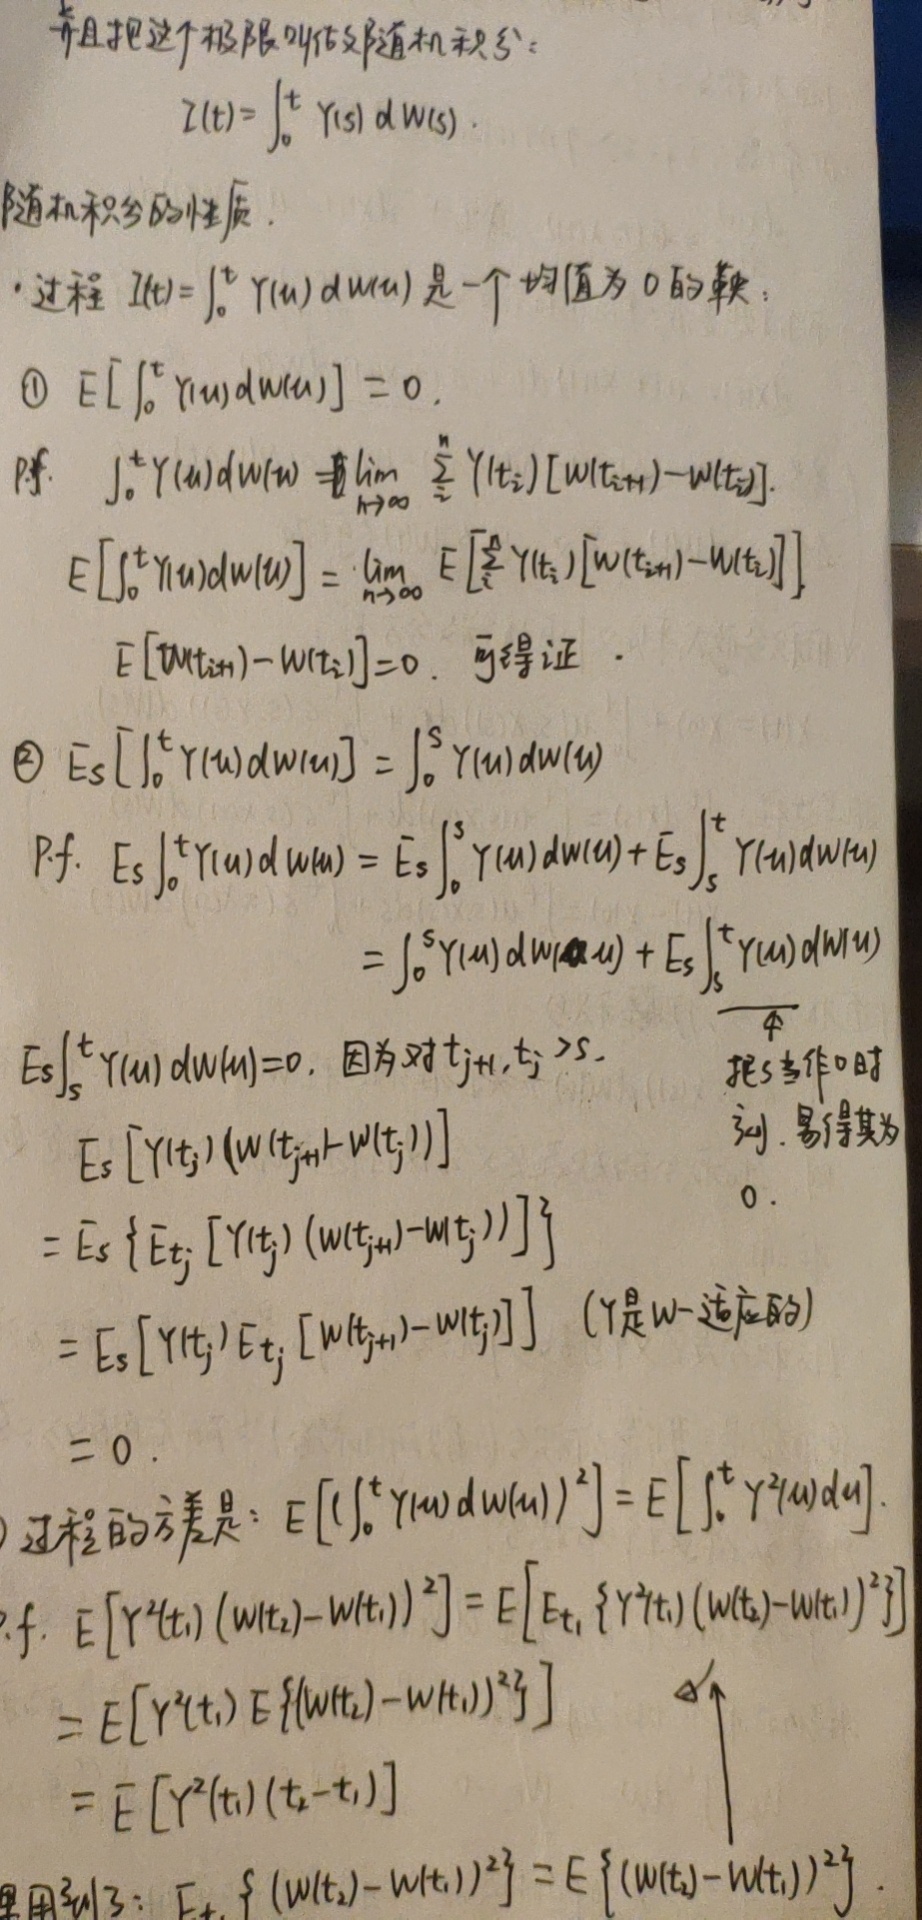 并且把这个极限叫伊藤随机积分:
I(t)=∫₀ᵗ Y(s) dW(s).
随机积分的性质.
·过程 I(t)=∫₀ᵗ Y(u) dW(u) 是一个均值为0的鞅:
① E[∫₀ᵗ Y(u)dW(u)] = 0.
P.f. ∫₀ᵗ Y(u)dW(u) = lim_{n→∞} Σᵢⁿ Y(tᵢ)[W(tᵢ₊₁)-W(tᵢ)].
E[∫₀ᵗ Y(u)dW(u)] = lim_{n→∞} E[Σᵢⁿ Y(tᵢ)[W(tᵢ₊₁)-W(tᵢ)]]
E[W(tᵢ₊₁)-W(tᵢ)]=0. 可得证.
② Eₛ[∫₀ᵗ Y(u)dW(u)] = ∫₀ˢ Y(u)dW(u)
P.f. Eₛ∫₀ᵗ Y(u)dW(u) = Eₛ∫₀ˢ Y(u)dW(u) + Eₛ∫ₛᵗ Y(u)dW(u)
= ∫₀ˢ Y(u)dW(u) + Eₛ∫ₛᵗ Y(u)dW(u)
↑
Eₛ∫ₛᵗ Y(u)dW(u)=0. 因为对 tⱼ₊₁, tⱼ >s.
把s当作0时
刻.易得其为
0.
Eₛ[Y(tⱼ)(W(tⱼ₊₁)-W(tⱼ))]
= Eₛ{E_{tⱼ}[Y(tⱼ)(W(tⱼ₊₁)-W(tⱼ))]}
= Eₛ[Y(tⱼ)E_{tⱼ}[W(tⱼ₊₁)-W(tⱼ)]] (Y是W-适应的)
= 0.
) 过程的方差是: E[(∫₀ᵗ Y(u)dW(u))²] = E[∫₀ᵗ Y²(u)du].
P.f. E[Y²(t₁)(W(t₂)-W(t₁))²] = E[E_{t₁}{Y²(t₁)(W(t₂)-W(t₁))²}]
= E[Y²(t₁)E{(W(t₂)-W(t₁))²}]
= E[Y²(t₁)(t₂-t₁)]
用到了: E_{t₁}{(W(t₂)-W(t₁))²} = E{(W(t₂)-W(t₁))²}.